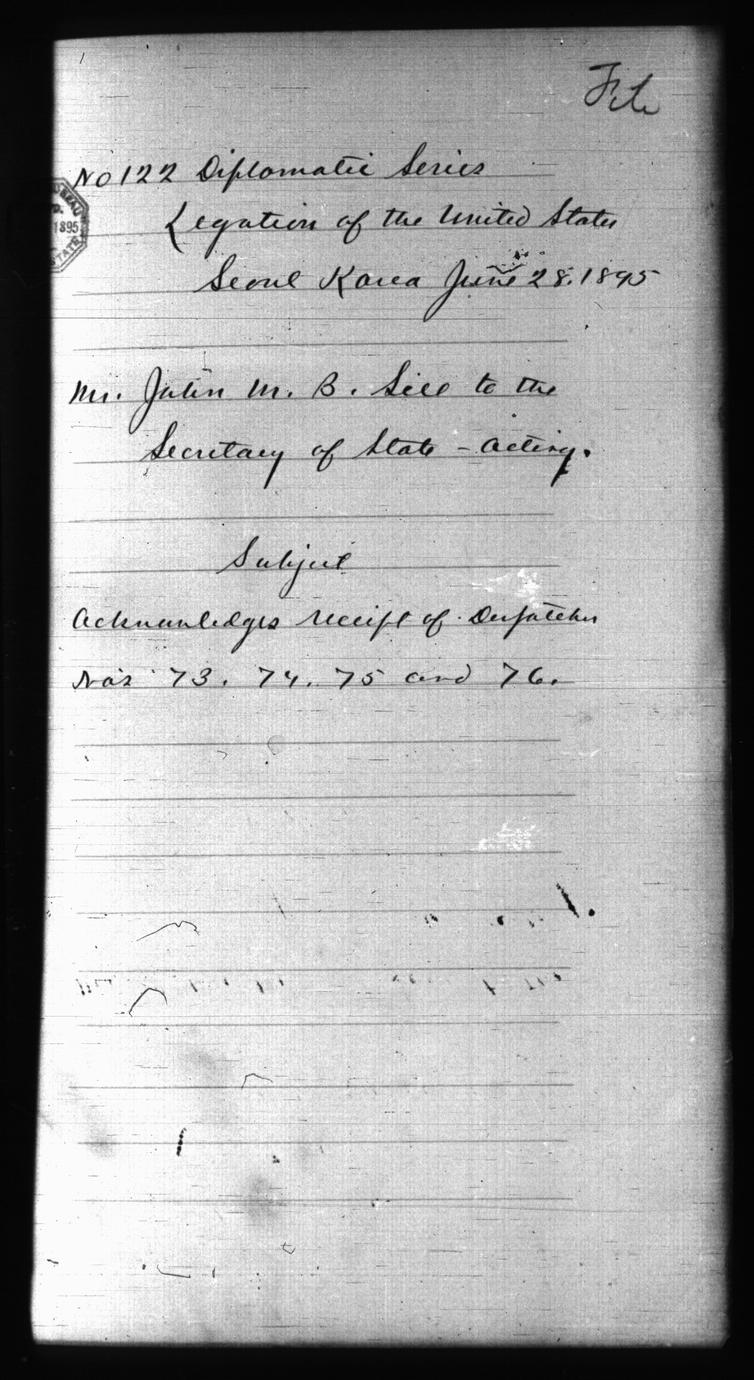 File
No 122 Diplomatic Series
Legation of the United States
Seoul Korea June 28. 1895
1895
Mr. John M. B. Sill to the
Secretary of State - Acting.
Subject
Acknowledges receipt of Despatches
No's 73. 74. 75 and 76.